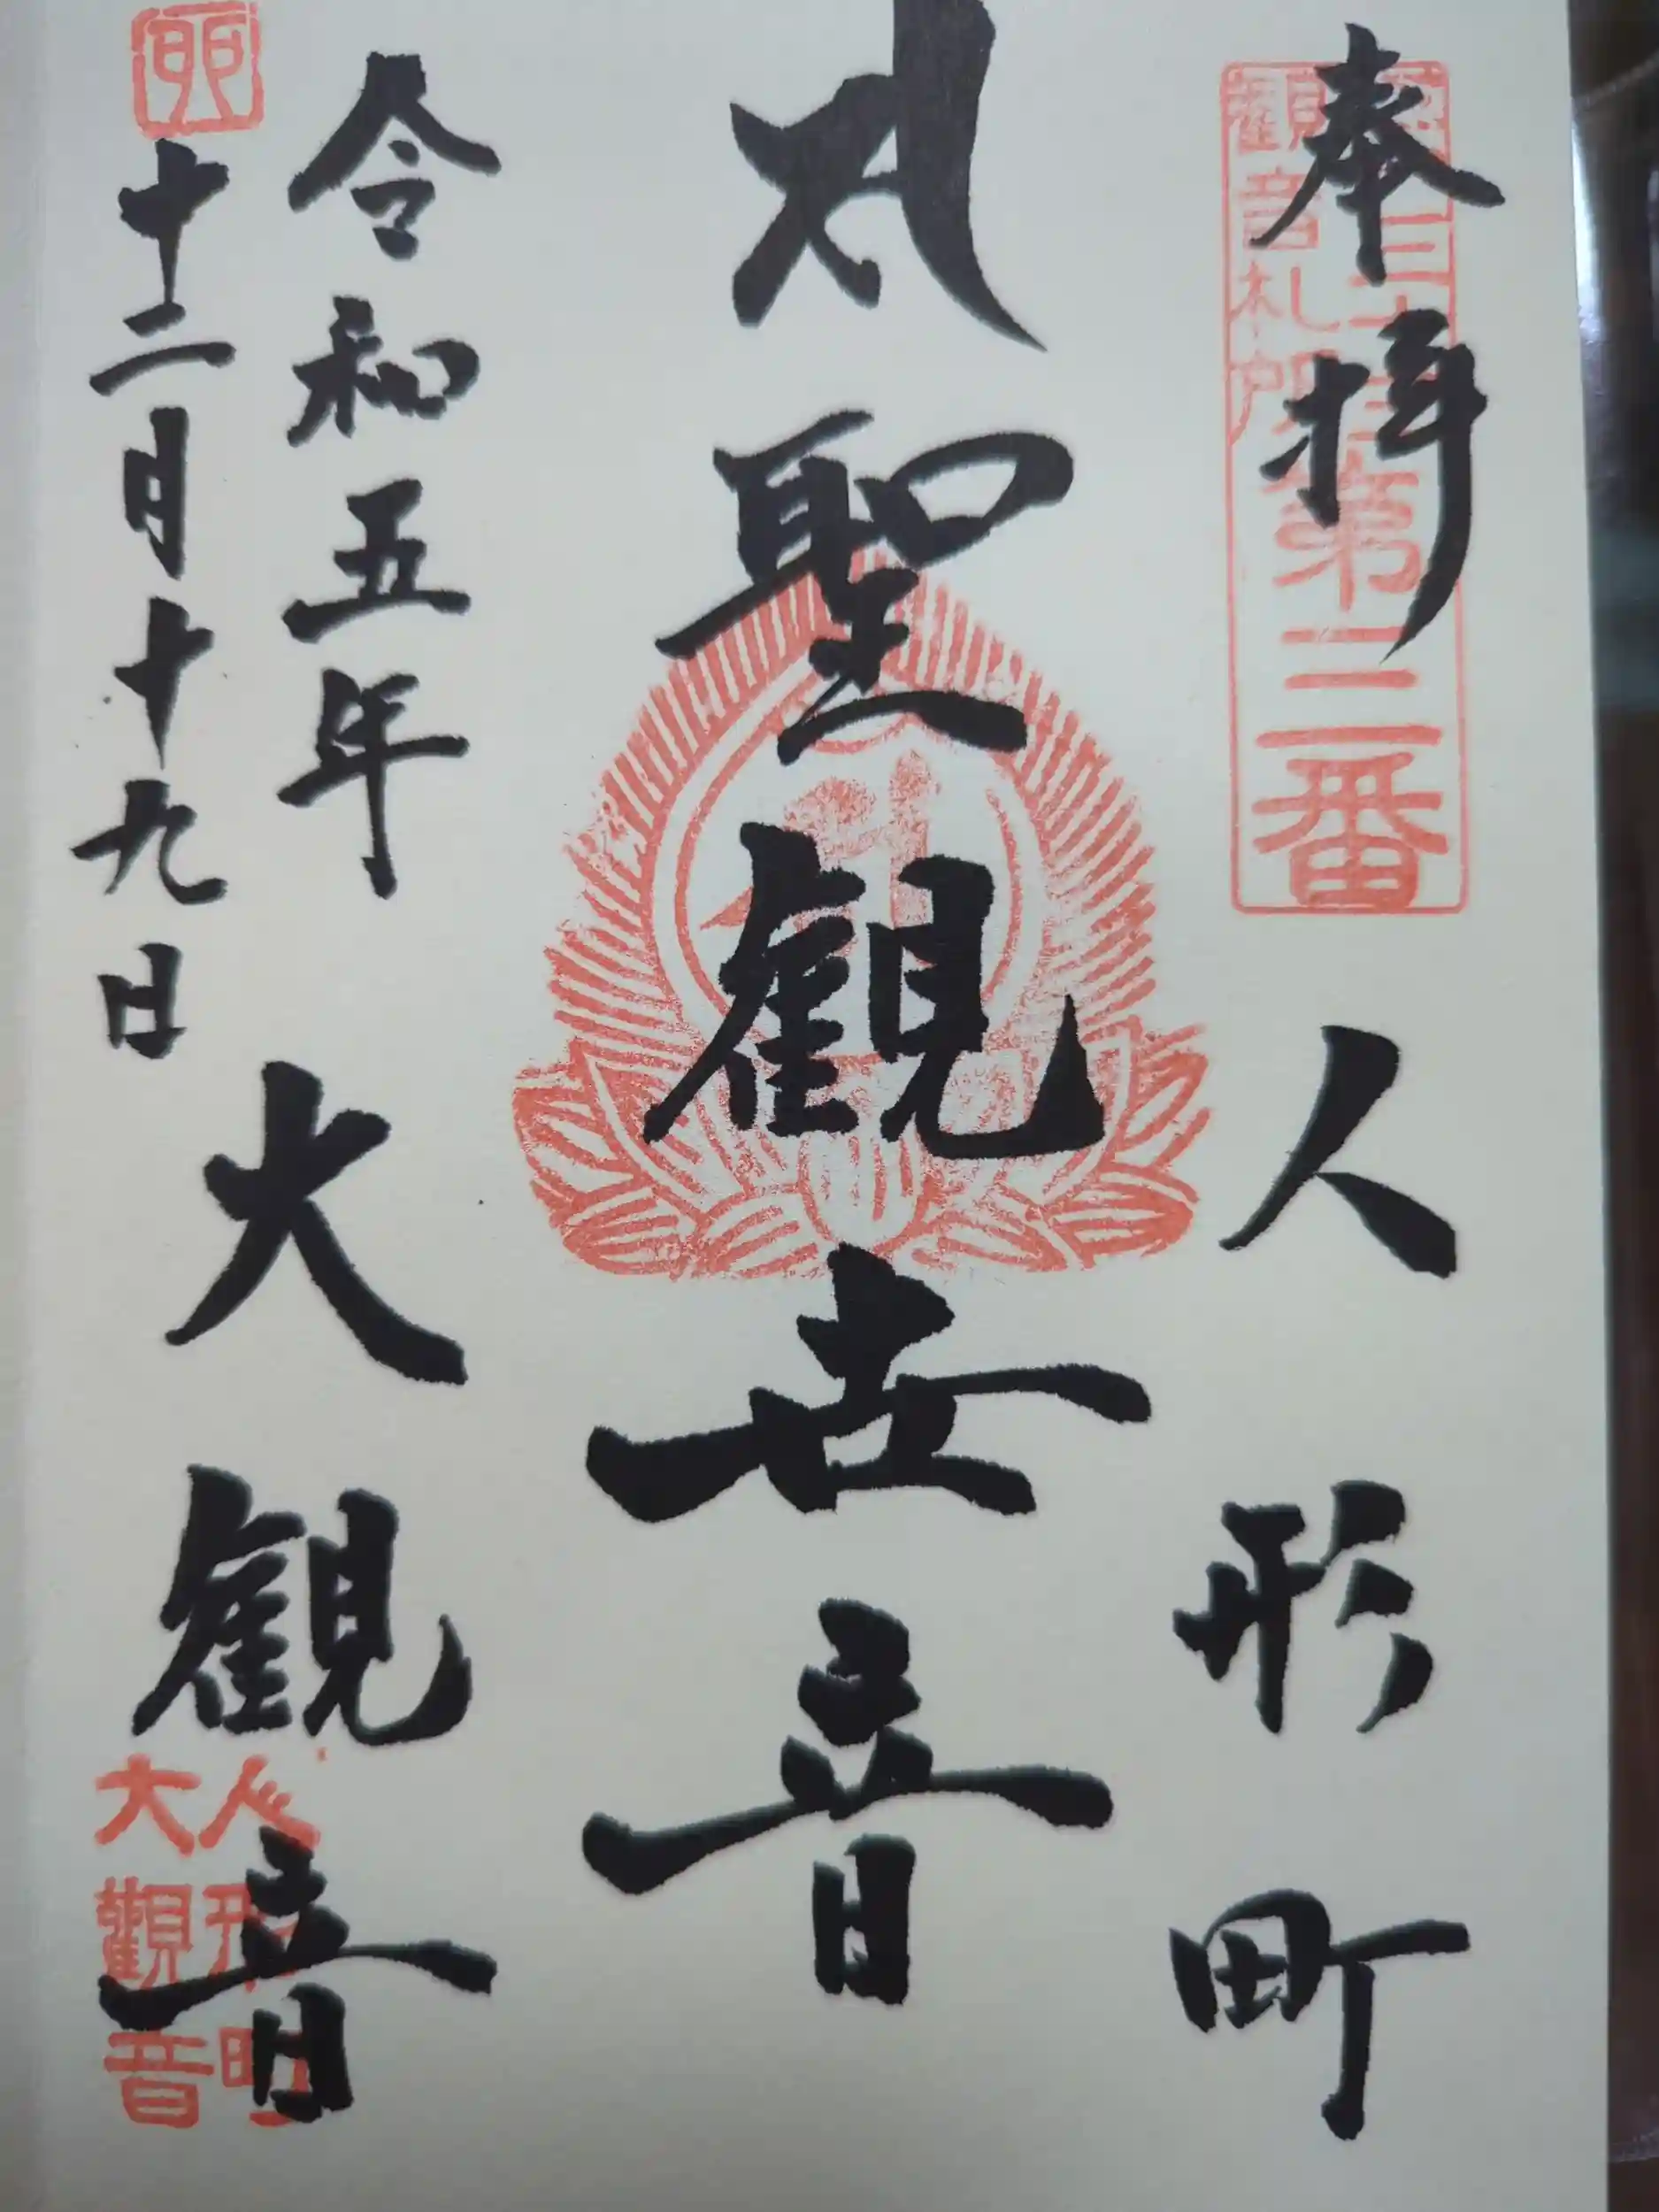 奉拝
人形町
観音札所
第三番
聖観世音
令和五年
十二月十九日
卯
大観音
人形町
大観音